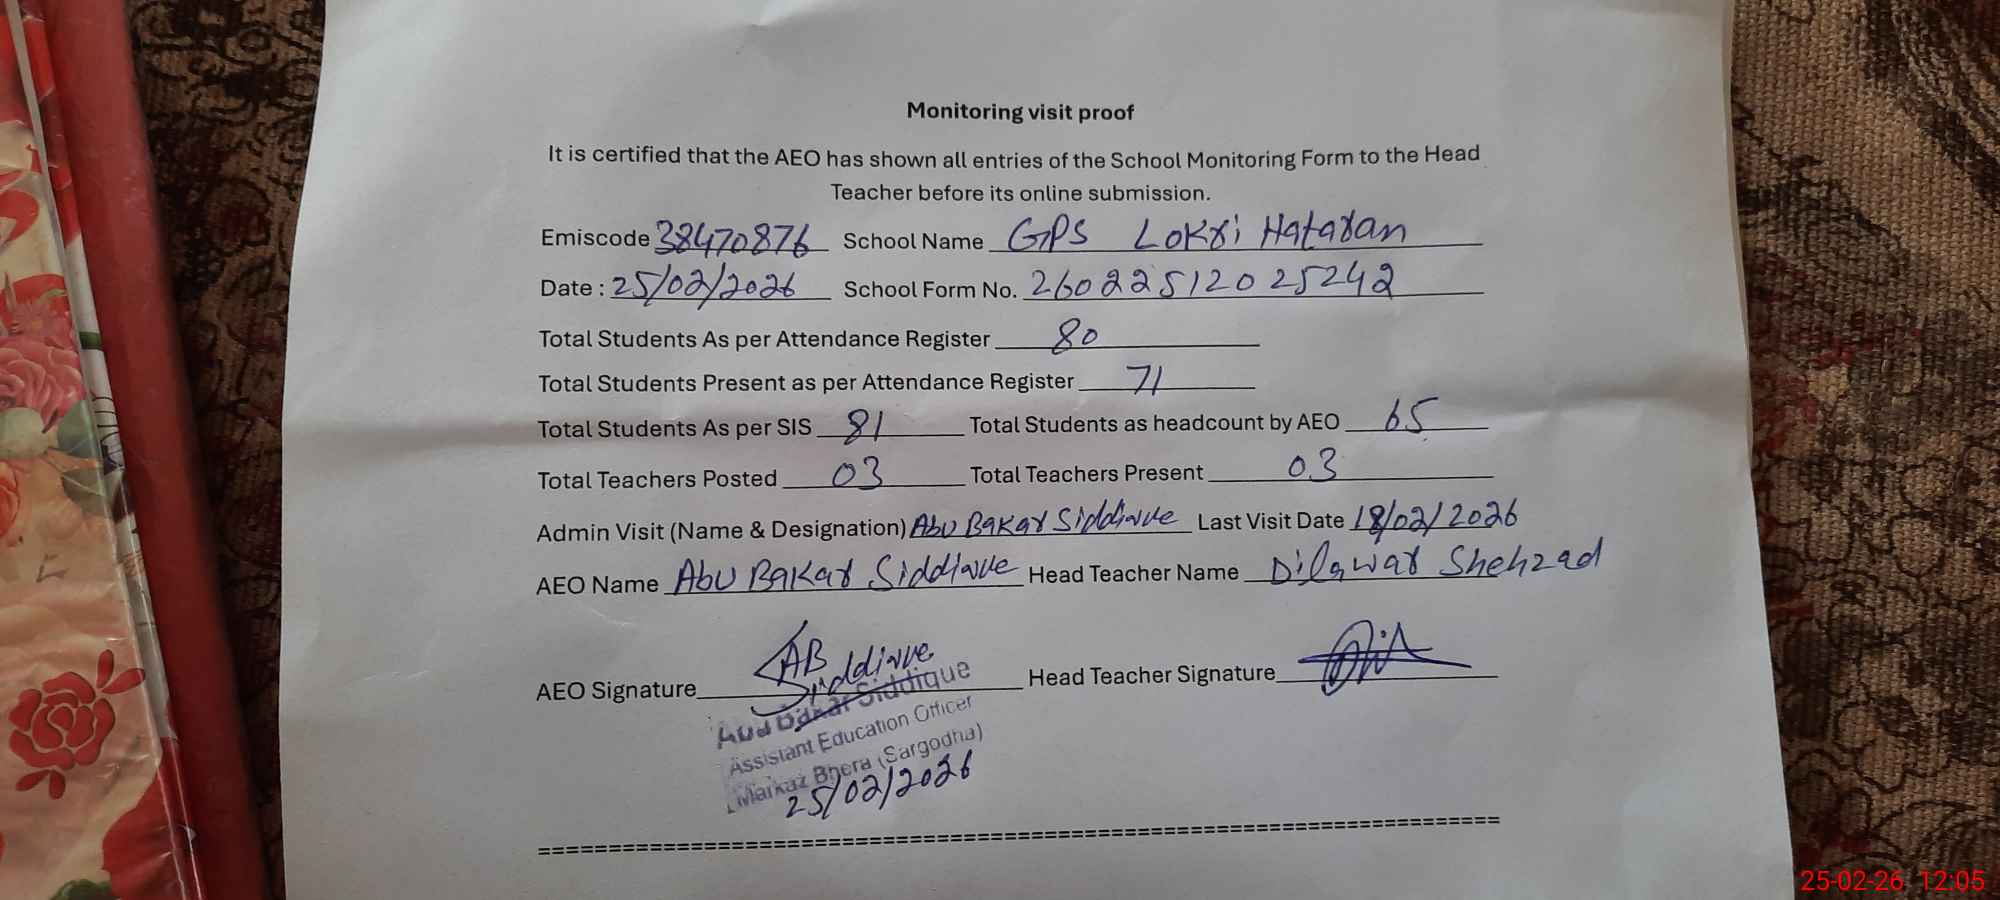 Monitoring visit proof
It is certified that the AEO has shown all entries of the School Monitoring Form to the Head
Teacher before its online submission.
Emiscode 38470876 School Name GPS Lokri Hataran
Date : 25/02/2026 School Form No. 26022512025242
Total Students As per Attendance Register 80
Total Students Present as per Attendance Register 71
Total Students As per SIS 81 Total Students as headcount by AEO 65
Total Teachers Posted 03 Total Teachers Present 03
Admin Visit (Name & Designation) Abu Bakar Siddique Last Visit Date 18/02/2026
AEO Name Abu Bakar Siddique Head Teacher Name Dilawar Shehzad
AEO Signature AB Siddique Head Teacher Signature
Abu Bakar Siddique
Assistant Education Officer
Markaz Bhera (Sargodha)
25/02/2026
25-02-26 12:05